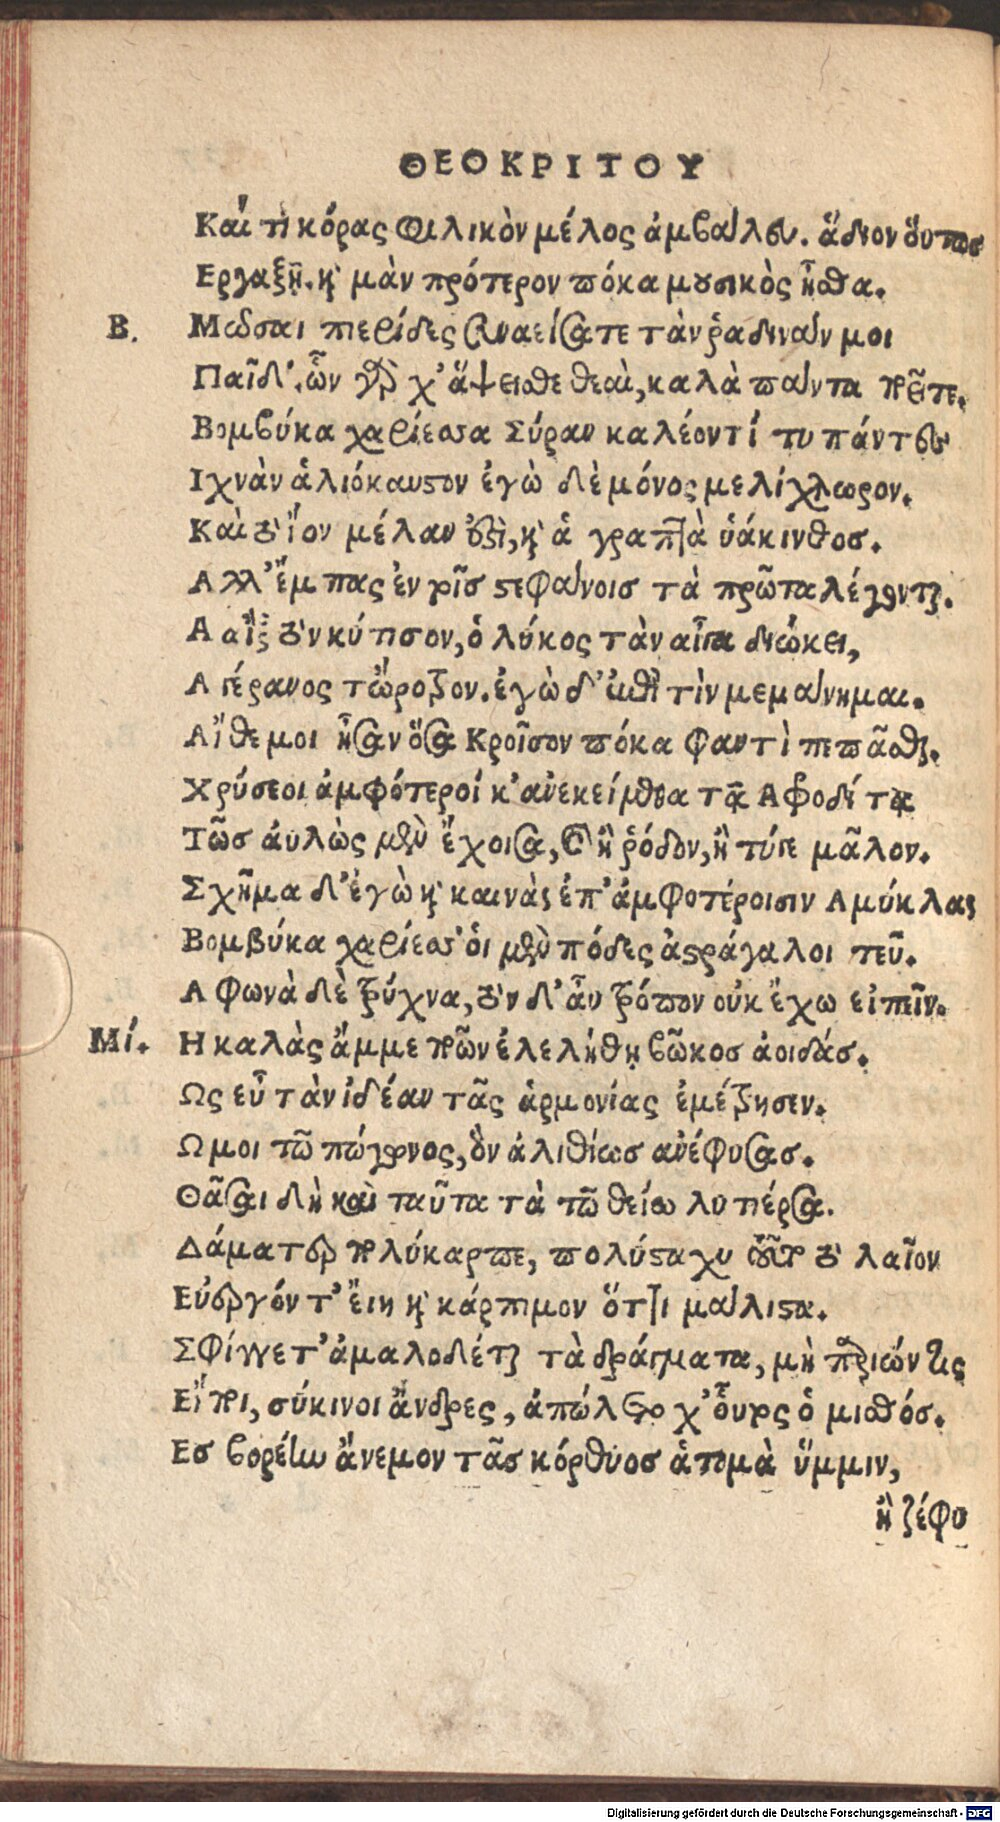 ΘΕΟΚΡΙΤΟΥ
Καί τι κόρας φιλικὸν μέλος ἀμβάλευ. ἅδιον οὕτως
Εργαξῇ. καὶ μὰν πρότερον πόκα μουσικὸς ἦσθα.
Β. Μῶσαι πιερίδες συναείσατε τὰν ῥαδινάν μοι
Παῖδ'. ὧν γάρ χ' ἅψεισθε θεαὶ, καλὰ πάντα ποιεῖτε.
Βομβύκα χαρίεσσα Σύραν καλέοντί τυ πάντες
Ιχνὰν ἁλιόκαυστον ἐγὼ δὲ μόνος μελίχλωρον.
Καὶ τὸ ἴον μέλαν ἐντὶ, καὶ ἁ γραπτὰ ὑάκινθος.
Αλλ' ἔμπας ἐν τοῖς στεφάνοις τὰ πρῶτα λέγονται.
Α αἲξ τὸν κύτισον, ὁ λύκος τὰν αἶγα διώκει,
Α γέρανος τὤροτρον. ἐγὼ δ' ἐπὶ τὶν μεμάνημαι.
Αἴθε μοι ἦσαν ὅσα Κροῖσον πόκα φαντὶ πεπᾶσθαι.
Χρύσεοι ἀμφότεροί κ' ἀνεκείμεθα τᾷ Αφροδίτᾳ
Τῶς αὐλὼς μὲν ἔχοισα, καὶ ἢ ῥόδον, ἢ τύγε μᾶλον.
Σχῆμα δ' ἐγὼ καὶ καινὰς ἐπ' ἀμφοτέροισιν Αμύκλας
Βομβύκα χαρίεσσ' οἱ μὲν πόδες ἀστράγαλοι τεῦ.
Α φωνὰ δὲ τρύχνα, τὸν δ' ἂν τρόπον οὐκ ἔχω εἰπεῖν.
Μί. Η καλὰς ἄμμε ποιῶν ἐλελήθη βῶκος ἀοιδάς.
Ως εὖ τὰν ἰδέαν τᾶς ἁρμονίας ἐμέτρησεν.
Ω μοι τῶ πώγωνος, ὃν ἀλιθίως ἀνέφυσας.
Θᾶσαι δὴ καὶ ταῦτα τὰ τῶ θείω λυτιέρσα.
Δάματερ πολύκαρπε, πολύσταχυ τοῦτο τὸ λαῖον
Εὐεργόν τ' ἔιη καὶ κάρπιμον ὅττι μάλιστα.
Σφίγγετ' ἀμαλοδέται τὰ δράγματα, μὴ παριών τις
Εἴποι, σύκινοι ἄνδρες, ἀπώλετο χ' οὗτος ὁ μισθός.
Ες βορέην ἄνεμον τᾶς κόρθυος ἁ τομὰ ὔμμιν,
ἢ ζέφυ
Digitalisierung gefördert durch die Deutsche Forschungsgemeinschaft - DFG